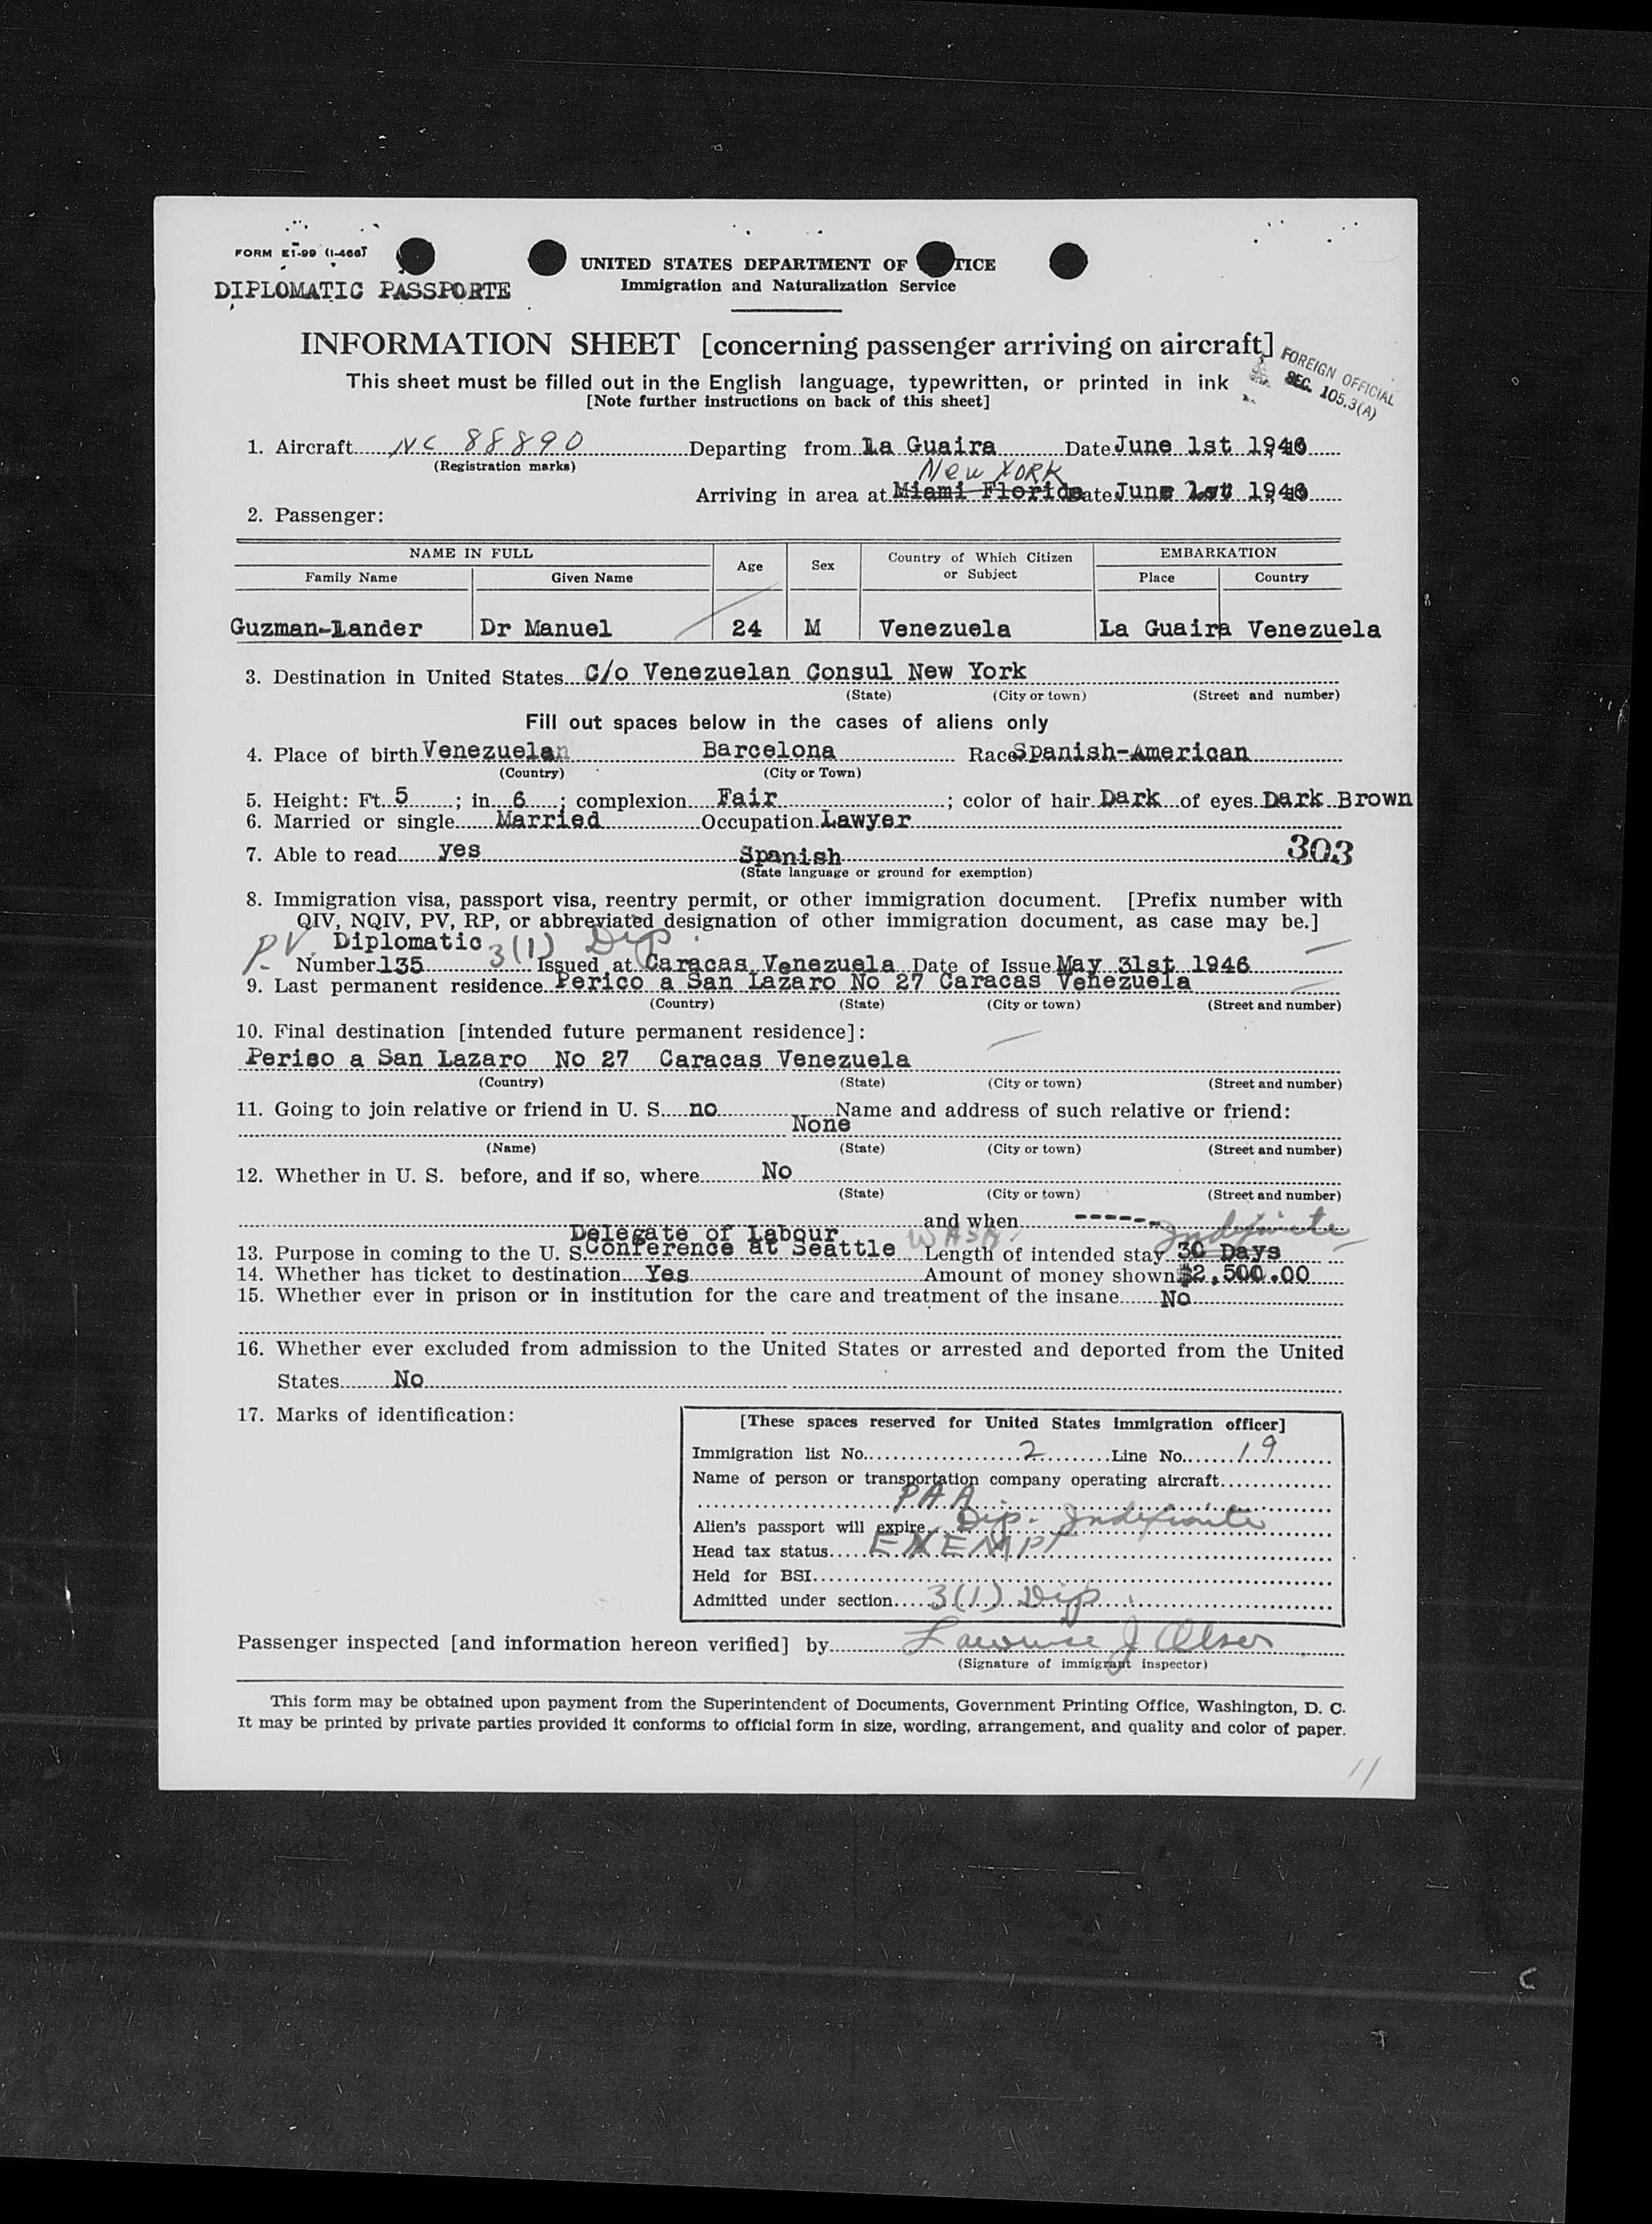 FORM EI-99 (I-466)
DIPLOMATIC PASSPORTE
UNITED STATES DEPARTMENT OF TICE
Immigration and Naturalization Service
INFORMATION SHEET [concerning passenger arriving on aircraft]
FOREIGN OFFICIAL
SEC. 105.3(A)
This sheet must be filled out in the English language, typewritten, or printed in ink
[Note further instructions on back of this sheet]
1. Aircraft NC 88890 Departing from La Guaira Date June 1st 1946
(Registration marks)
New YORK
Arriving in area at Miami Florida Date June 1st 1946
2. Passenger:
NAME IN FULL Age Sex Country of Which Citizen or Subject EMBARKATION
Family Name Given Name Place Country
Guzman-Lander Dr Manuel 24 M Venezuela La Guaira Venezuela
3. Destination in United States C/o Venezuelan Consul New York
(State) (City or town) (Street and number)
Fill out spaces below in the cases of aliens only
4. Place of birth Venezuelan Barcelona Race Spanish-American
(Country) (City or Town)
5. Height: Ft. 5 ; in. 6 ; complexion Fair ; color of hair Dark of eyes Dark Brown
6. Married or single Married Occupation Lawyer
7. Able to read yes Spanish 303
(State language or ground for exemption)
8. Immigration visa, passport visa, reentry permit, or other immigration document. [Prefix number with
QIV, NQIV, PV, RP, or abbreviated designation of other immigration document, as case may be.]
P.V. Diplomatic 3(1) Dip.
Number 135 Issued at Caracas Venezuela Date of Issue May 31st 1946
9. Last permanent residence Perico a San Lazaro No 27 Caracas Venezuela
(Country) (State) (City or town) (Street and number)
10. Final destination [intended future permanent residence]:
Periso a San Lazaro No 27 Caracas Venezuela
(Country) (State) (City or town) (Street and number)
11. Going to join relative or friend in U. S. no Name and address of such relative or friend:
None
(Name) (State) (City or town) (Street and number)
12. Whether in U. S. before, and if so, where No
(State) (City or town) (Street and number)
and when ------ Indefinite
Delegate of Labour
13. Purpose in coming to the U. S. Conference at Seattle WASH. Length of intended stay 30 Days
14. Whether has ticket to destination Yes Amount of money shown $2,500.00
15. Whether ever in prison or in institution for the care and treatment of the insane No
16. Whether ever excluded from admission to the United States or arrested and deported from the United
States No
17. Marks of identification:
[These spaces reserved for United States immigration officer]
Immigration list No. 2 Line No. 19
Name of person or transportation company operating aircraft
PAA
Alien's passport will expire Dip. Indefinite
Head tax status EXEMPT
Held for BSI
Admitted under section 3(1) Dip.
Passenger inspected [and information hereon verified] by Lawrence J Olsen
(Signature of immigrant inspector)
This form may be obtained upon payment from the Superintendent of Documents, Government Printing Office, Washington, D. C.
It may be printed by private parties provided it conforms to official form in size, wording, arrangement, and quality and color of paper.
11